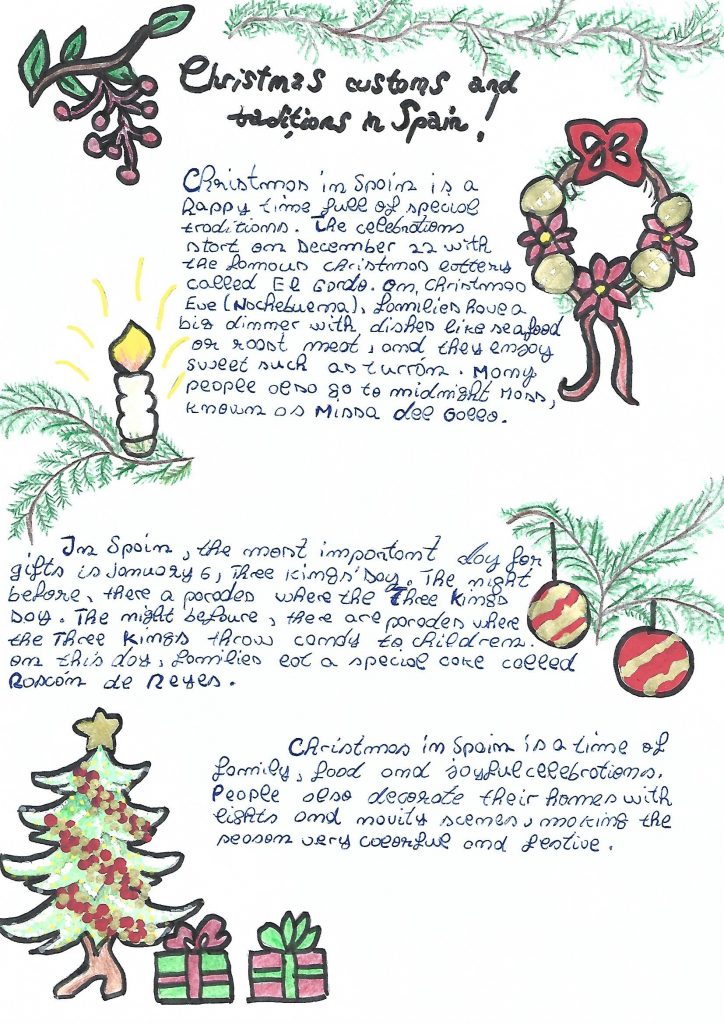 Christmas customs and
traditions in Spain!
Christmas in Spain is a
happy time full of special
traditions. The celebrations
start on December 22 with
the famous christmas lottery
called El Gordo. On, christmas
Eve (Nochebuena), families have a
big dinner with dishes like seafood
or roast meat, and they enjoy
sweet such as turrón. Many
people also go to midnight Mass,
known as Missa del Gallo.
In Spain, the most important day for
gifts is January 6, Three Kings' Day. The night
before, there a parades where the Three Kings
Day. The night befoure, there are parades where
the Three Kings throw candy to children.
on this day, families eat a special cake called
Roscón de Reyes.
Christmas in Spain is a time of
family, food and joyful celebrations.
People also decorate their homes with
lights and navity scenes, making the
season very colorful and festive.